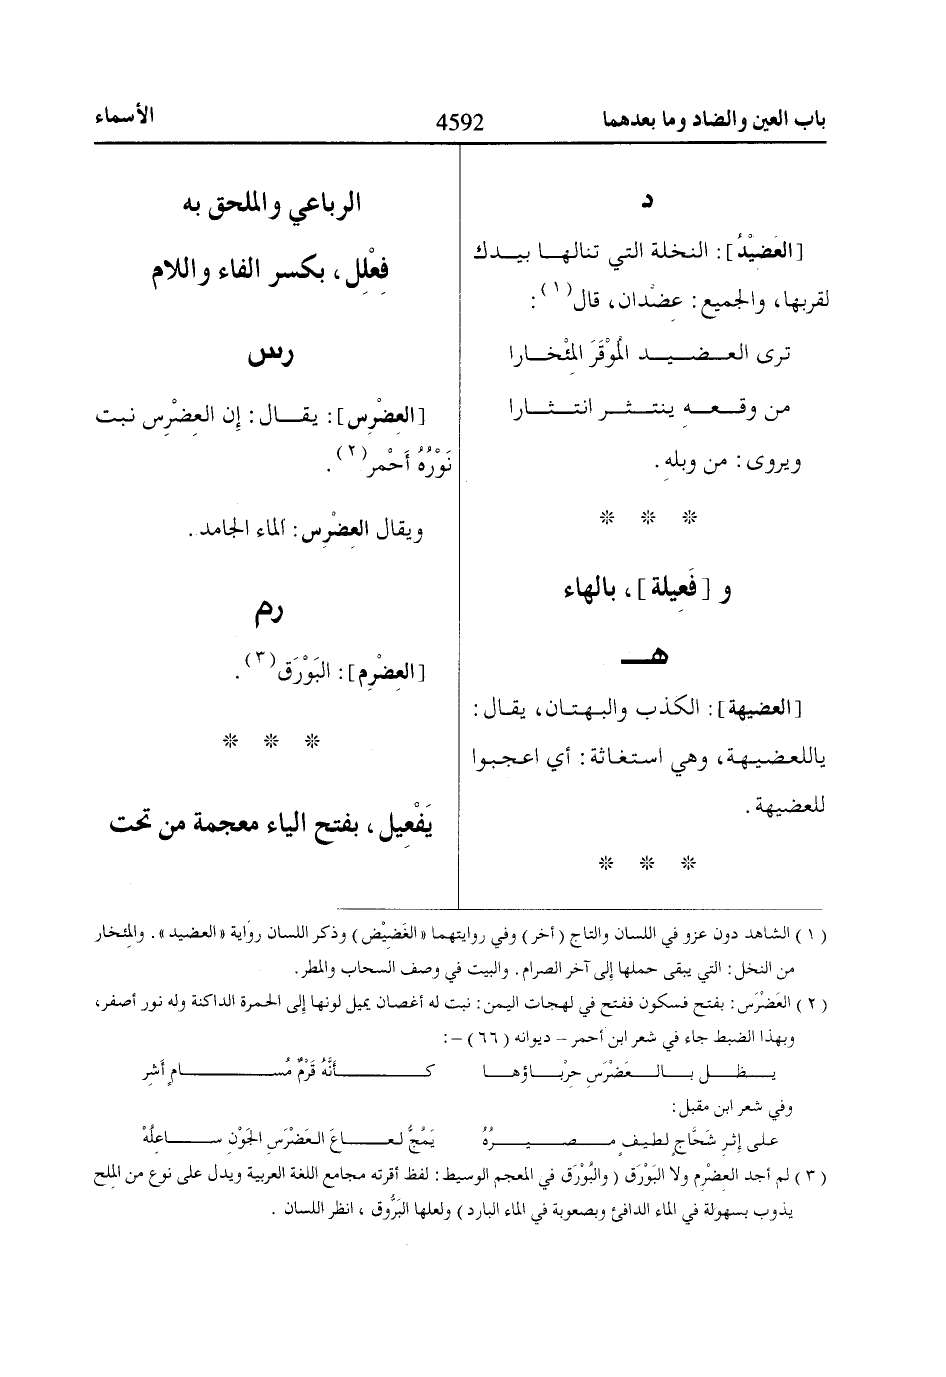 باب العين والضاد وما بعدهما 4592 الأسماء
د
[العَضيْدُ]: النخلة التي تنالها بيدك
لقربها، والجميع: عِضْدان، قال(١):
ترى العضيد المُوْقَرَ المِئْخارا
من وقعه ينتثر انتثارا
ويروى: من وبلهِ.
* * *
و [فَعِيلة]، بالهاء
هـ
[العضيهة]: الكذب والبهتان، يقال:
ياللعضيهة، وهي استغاثة: أي اعجبوا
للعضيهة.
* * *
الرباعي والملحق به
فِعْلِل، بكسر الفاء واللام
رس
[العِضْرِس]: يقال: إن العِضْرِس نبت
نَوْرُهُ أَحْمر(٢).
ويقال العِضْرِس: الماء الجامد.
رم
[العِضْرِم]: البَوْرَق(٣).
* * *
يَفْعِيل، بفتح الياء معجمة من تحت
(١) الشاهد دون عزو في اللسان والتاج (أخر) وفي روايتهما «الغَضِيْض) وذكر اللسان رواية «العضيد». والمِئخار
من النخل: التي يبقى حملها إلى آخر الصرام. والبيت في وصف السحاب والمطر.
(٢) العَضْرَس: بفتح فسكون ففتح في لهجات اليمن: نبت له أغصان يميل لونها إلى الحمرة الداكنة وله نور أصفر،
وبهذا الضبط جاء في شعر ابن أحمر – ديوانه (٦٦) –:
يظل بالعَضْرَسِ حِرْباؤها كأنَّهُ قَرْمٌ مُسامٍ أَشِر
وفي شعر ابن مقبل:
على إِثرِ شَحَّاجٍ لطيفٍ مصيرُهُ يَمُجُّ لعاعَ العَضْرَسِ الجَوْنِ ساعِلُهْ
(٣) لم أجد العضْرِم ولا البَوْرَق (والبُوْرَق في المعجم الوسيط: لفظ أقرته مجامع اللغة العربية ويدل على نوع من الملح
يذوب بسهولة في الماء الدافئ وبصعوبة في الماء البارد) ولعلها البَرُّوق، انظر اللسان.